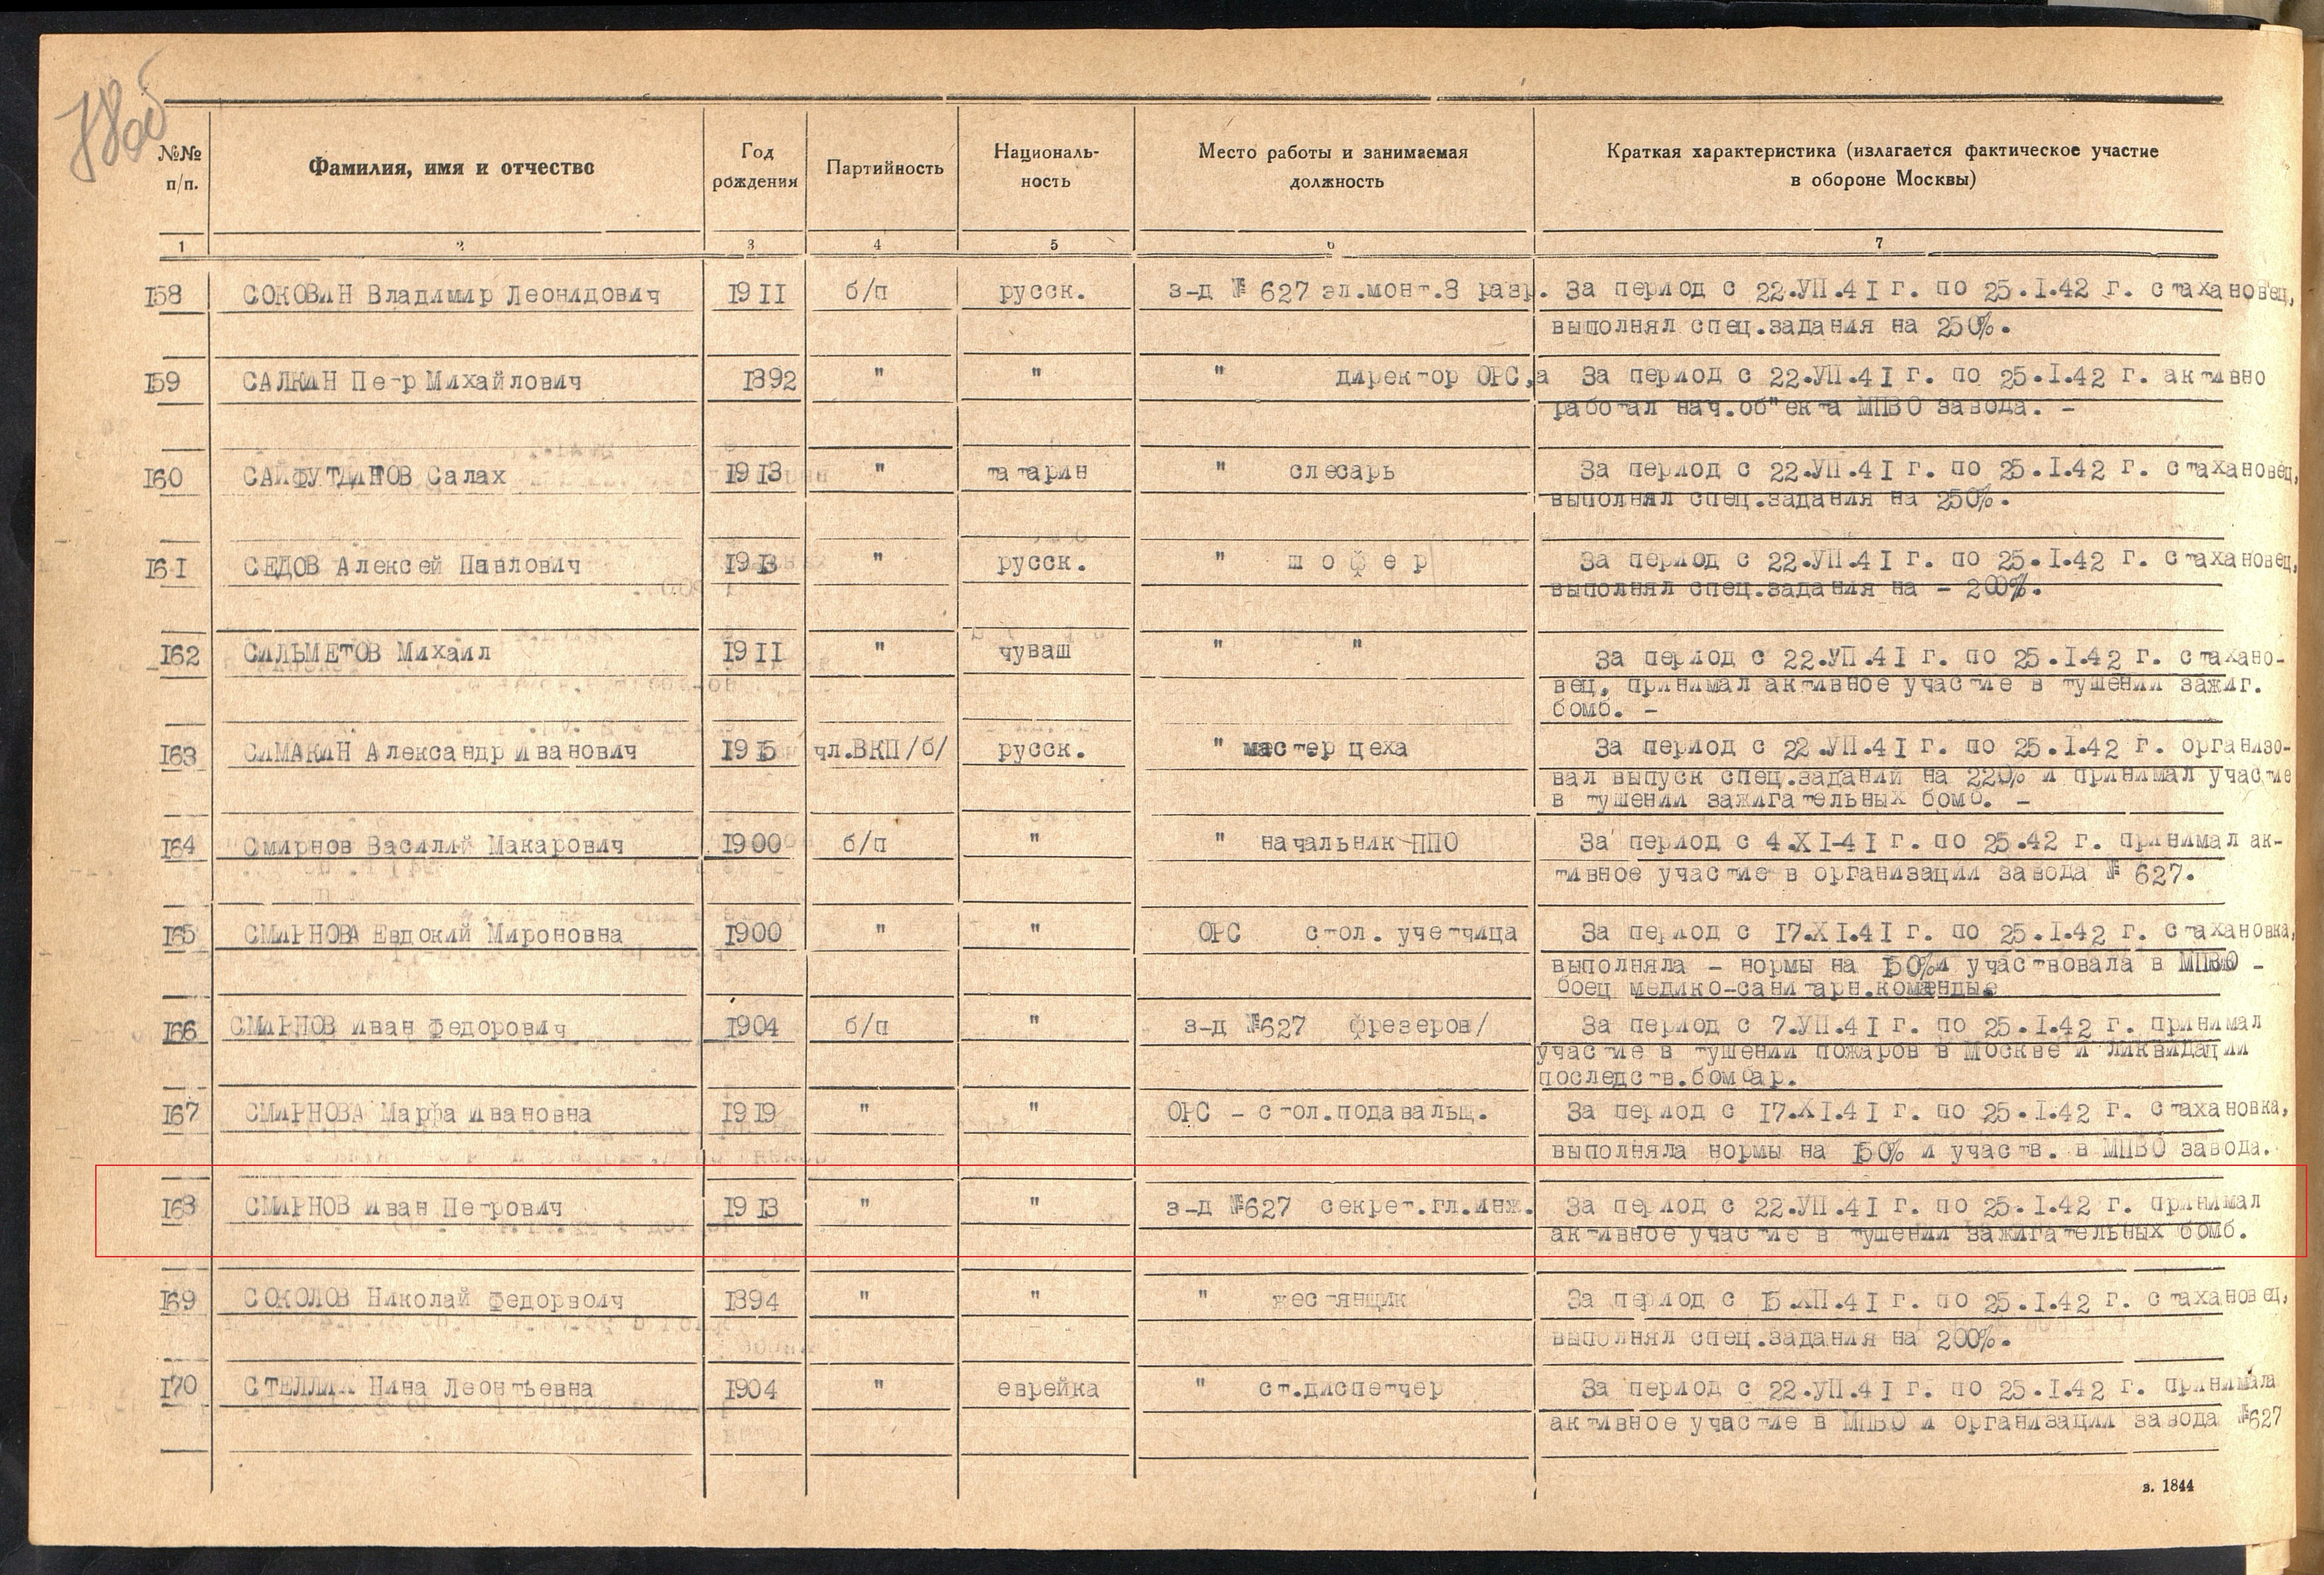 №№ п/п. Фамилия, имя и отчество Год рождения Партийность Националь-ность Место работы и занимаемая должность Краткая характеристика (излагается фактическое участие в обороне Москвы)
1 2 3 4 5 6 7
I58 СОКОВИН Владимир Леонидович 19II б/п русск. з-д № 627 эл.монт.8 разр. За период с 22.УП.4I г. по 25.I.42 г. стахановец,
выполнял спец.задания на 250%.
I59 САЛКИН Петр Михайлович I892 " " " директор ОРС,а За период с 22.УП.4I г. по 25.I.42 г. активно
работал нач.об"екта МПВО завода. -
I60 САЙФУТДИНОВ Салах I9I3 " татарин " слесарь За период с 22.УП.4I г. по 25.I.42 г. стахановец,
выполнял спец.задания на 250%.
I6I СЕДОВ Алексей Павлович I9I3 " русск. " шофер За период с 22.УП.4I г. по 25.I.42 г. стахановец,
выполнял спец.задания на - 200%.
I62 СИЛЬМЕТОВ Михаил I9II " чуваш " " За период с 22.УП.4I г. по 25.I.42 г. стахано-
вец, принимал активное участие в тушении зажиг.
бомб. -
I63 СИМАКИН Александр Иванович I9I5 чл.ВКП/б/ русск. " мастер цеха За период с 22.УП.4I г. по 25.I.42 г. организо-
вал выпуск спец.заданий на 220% и принимал участие
в тушении зажигательных бомб. -
I64 Смирнов Василий Макарович I900 б/п " " начальник ППО За период с 4.XI-4I г. по 25.42 г. принимал ак-
тивное участие в организации завода № 627.
I65 СМИРНОВА Евдокий Мироновна I900 " " ОРС стол. учетчица За период с I7.XI.4I г. по 25.I.42 г. стахановка,
выполняла - нормы на I50%и участвовала в МПВО -
боец медико-санитарн.команды.
I66 СМИРНОВ Иван Федорович I904 б/п " з-д №627 фрезеров/ За период с 7.УП.4I г. по 25.I.42 г. принимал
участие в тушении пожаров в Москве и ликвидации
последств.бомбар.
I67 СМИРНОВА Марфа Ивановна I9I9 " " ОРС - стол.подавальщ. За период с I7.XI.4I г. по 25.I.42 г. стахановка,
выполняла нормы на I50% и участв. в МПВО завода.
I68 СМИРНОВ Иван Петрович I9I3 " " з-д №627 секрет.гл.инж. За период с 22.УП.4I г. по 25.I.42 г. принимал
активное участие в тушении зажигательных бомб.
I69 СОКОЛОВ Николай Федорвоич I894 " " " жестянщик За период с I5.ХП.4I г. по 25.I.42 г. стахановец,
выполнял спец.задания на 200%.
I70 Нина Леонтьевна I904 " еврейка " ст.диспетчер За период с 22.УП.4I г. по 25.I.42 г. принимала
активное участие в МПВО и организации завода №627
з. 1844